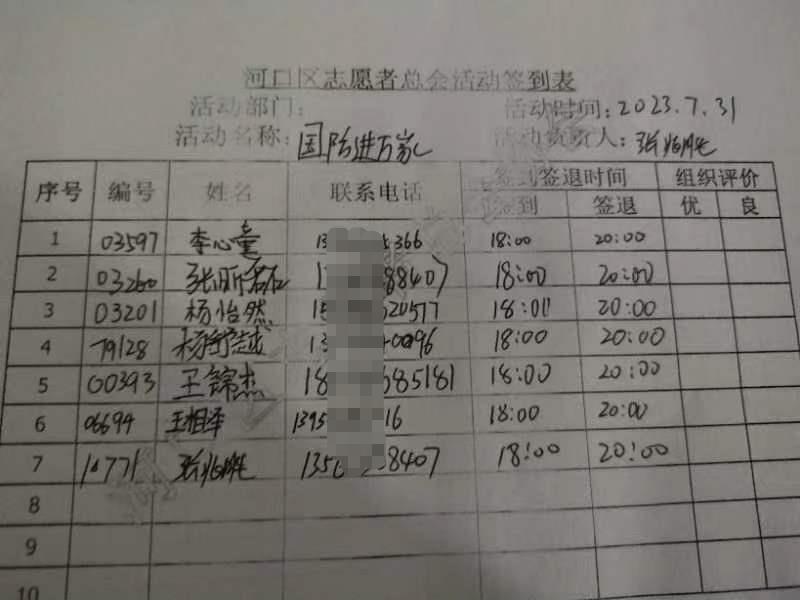 河口区志愿者总会活动签到表
活动部门： 活动时间：2023.7.31
活动名称：国防进万家 活动负责人：张兆胜
序号 编号 姓名 联系电话 签到签退时间 组织评价
签到 签退 优 良
1 03597 李心童 13 366 18:00 20:00
2 03260 张昕 1 88407 18:00 20:00
3 03201 杨怡然 15 20577 18:01 20:00
4 79128 杨舒越 13 0096 18:00 20:00
5 00393 王锦杰 18 685181 18:00 20:00
6 06694 王相泽 1395 16 18:00 20:00
7 10771 张兆胜 135 8407 18:00 20:00
8
9
10